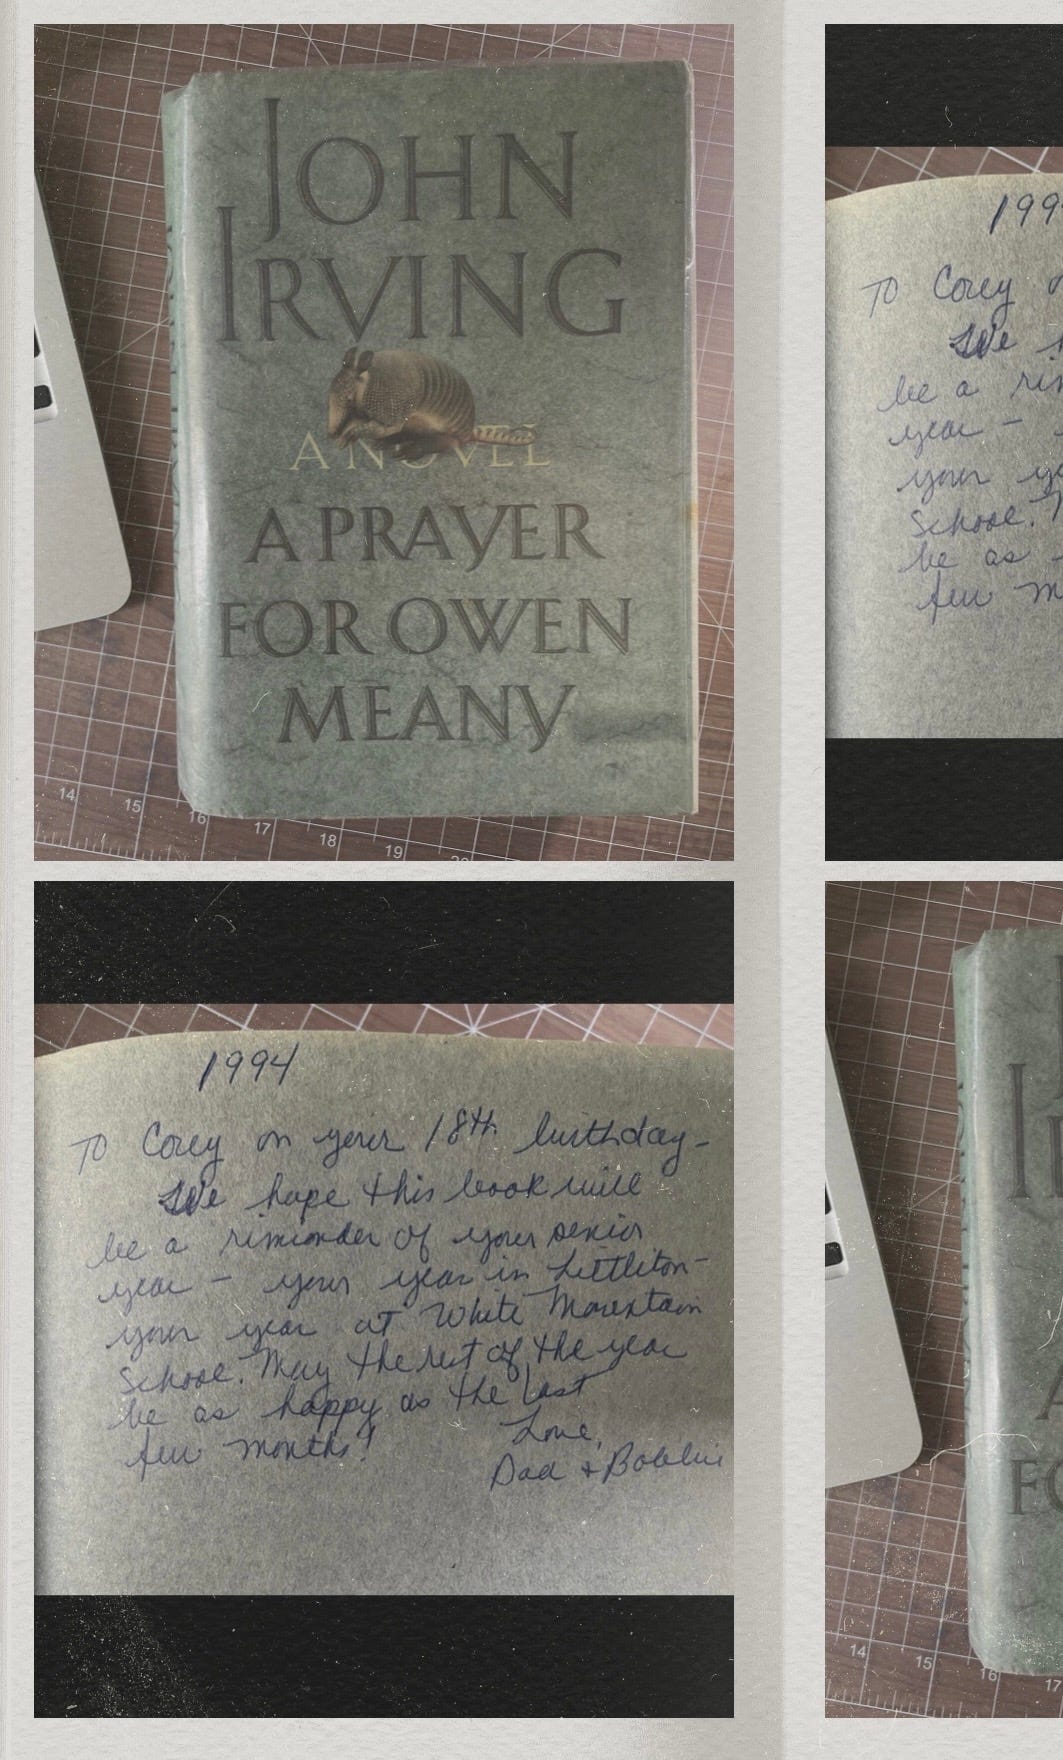 JOHN
IRVING
A NOVEL
A PRAYER
FOR OWEN
MEANY
14 15 16 17 18 19 20
1994
To Corey on your 18th birthday-
We hope this book will
be a riminder of your senior
year - your year in Littleton-
your year at White Mountain
School. May the rest of the year
be as happy as the last
few months!
Love,
Dad + Bobbie
199
To Corey o
We h
be a rim
year -
your ye
School.
be as
few m
14 15 16 17